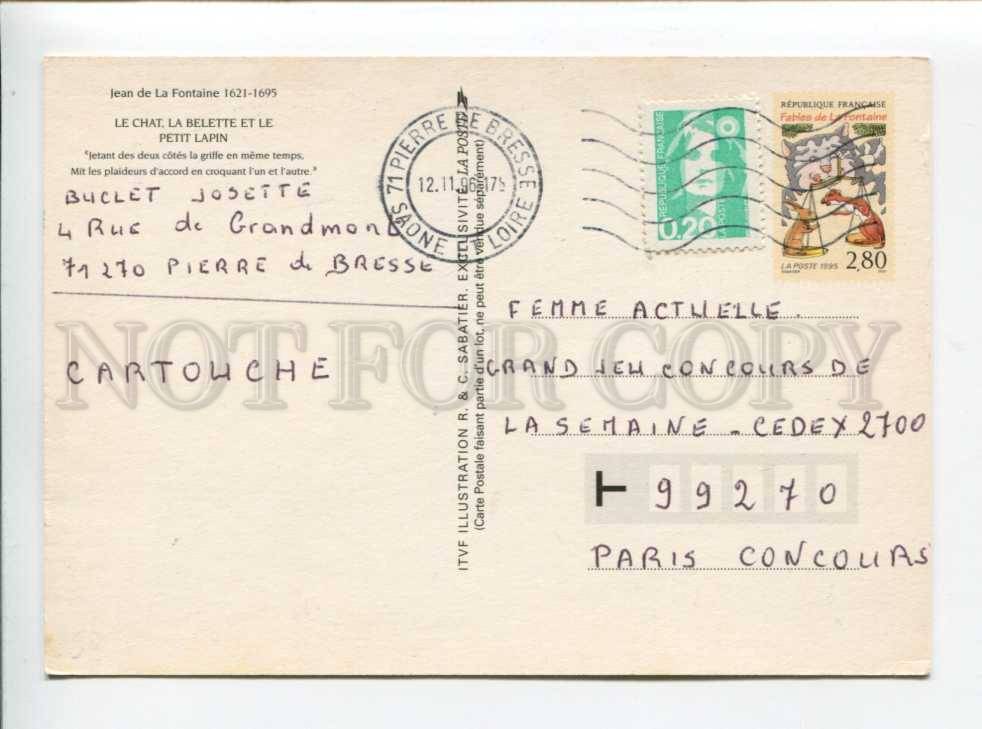 Jean de La Fontaine 1621-1695
LE CHAT, LA BELETTE ET LE
PETIT LAPIN
"Jetant des deux côtés la griffe en même temps,
Mit les plaideurs d'accord en croquant l'un et l'autre."
BUCLET JOSETTE
4 Rue de Grandmont
71270 PIERRE de BRESSE
CARTOUCHE
71 PIERRE DE BRESSE
12.11.96
SAONE ET LOIRE
ITVF ILLUSTRATION R. & C. SABATIER. EXCLUSIVITE LA POSTE
(Carte Postale faisant partie d'un lot, ne peut être vendue séparément)
RÉPUBLIQUE FRANÇAISE
LA POSTE
0,20
RÉPUBLIQUE FRANÇAISE
Fables de La Fontaine
LA POSTE 1995
2,80
FEMME ACTUELLE.
GRAND JEU CONCOURS DE
LA SEMAINE - CEDEX 2700
99270
PARIS CONCOURS
NOT FOR COPY